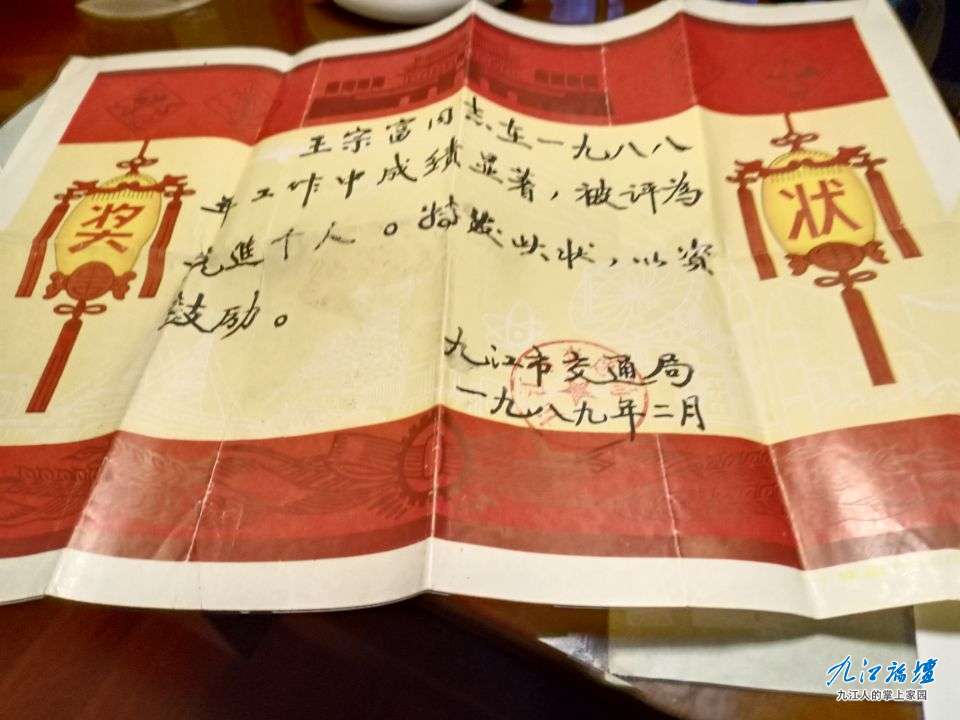 奖
状
王宗富同志在一九八八
年工作中成绩显著，被评为
先進个人。特发此状，以资
鼓励。
九江市交通局
一九八九年二月
九江论坛
九江人的掌上家园